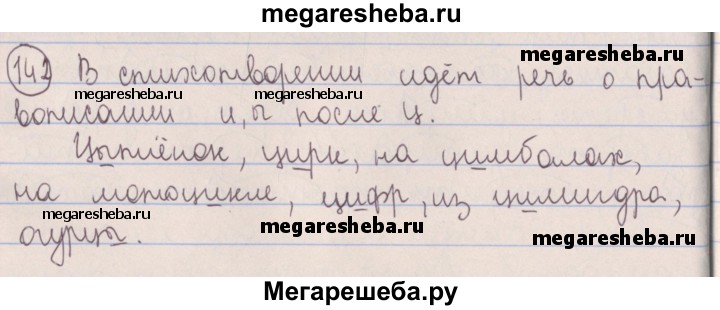 megaresheba.ru
142 В стихотворении идёт речь о пра-
megaresheba.ru
megaresheba.ru
megaresheba.ru
вописании и, ы после ц.
Цыплёнок, цирк, на цимбалах,
на мотоцикле, цифр, из цилиндра,
megaresheba.ru
megaresheba.ru
megaresheba.ru
огурцы.
Мегарешеба.ру